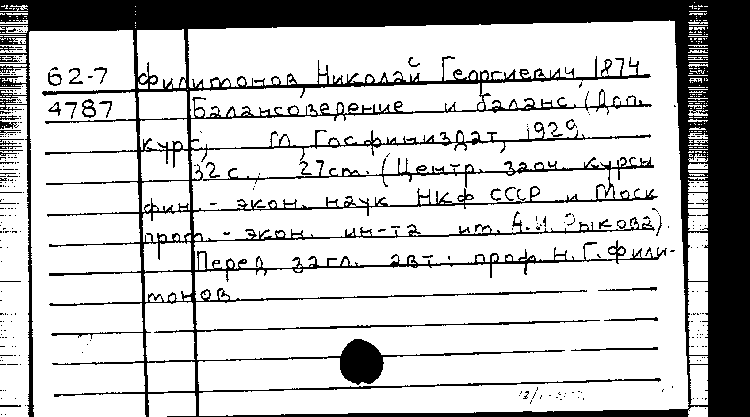 62-7 Филимонов, Николай Георгиевич, 1874
4787 Балансоведение и баланс. (Доп.
курс), М., Госфиниздат, 1929.
32 с., 27 cm. (Центр. заоч. курсы
фин. - экон. наук НКФ СССР и Моск
пром. - экон. ин-та им. А.И. Рыкова).
Перед загл. авт.: проф. Н.Г. Фили-
монов.